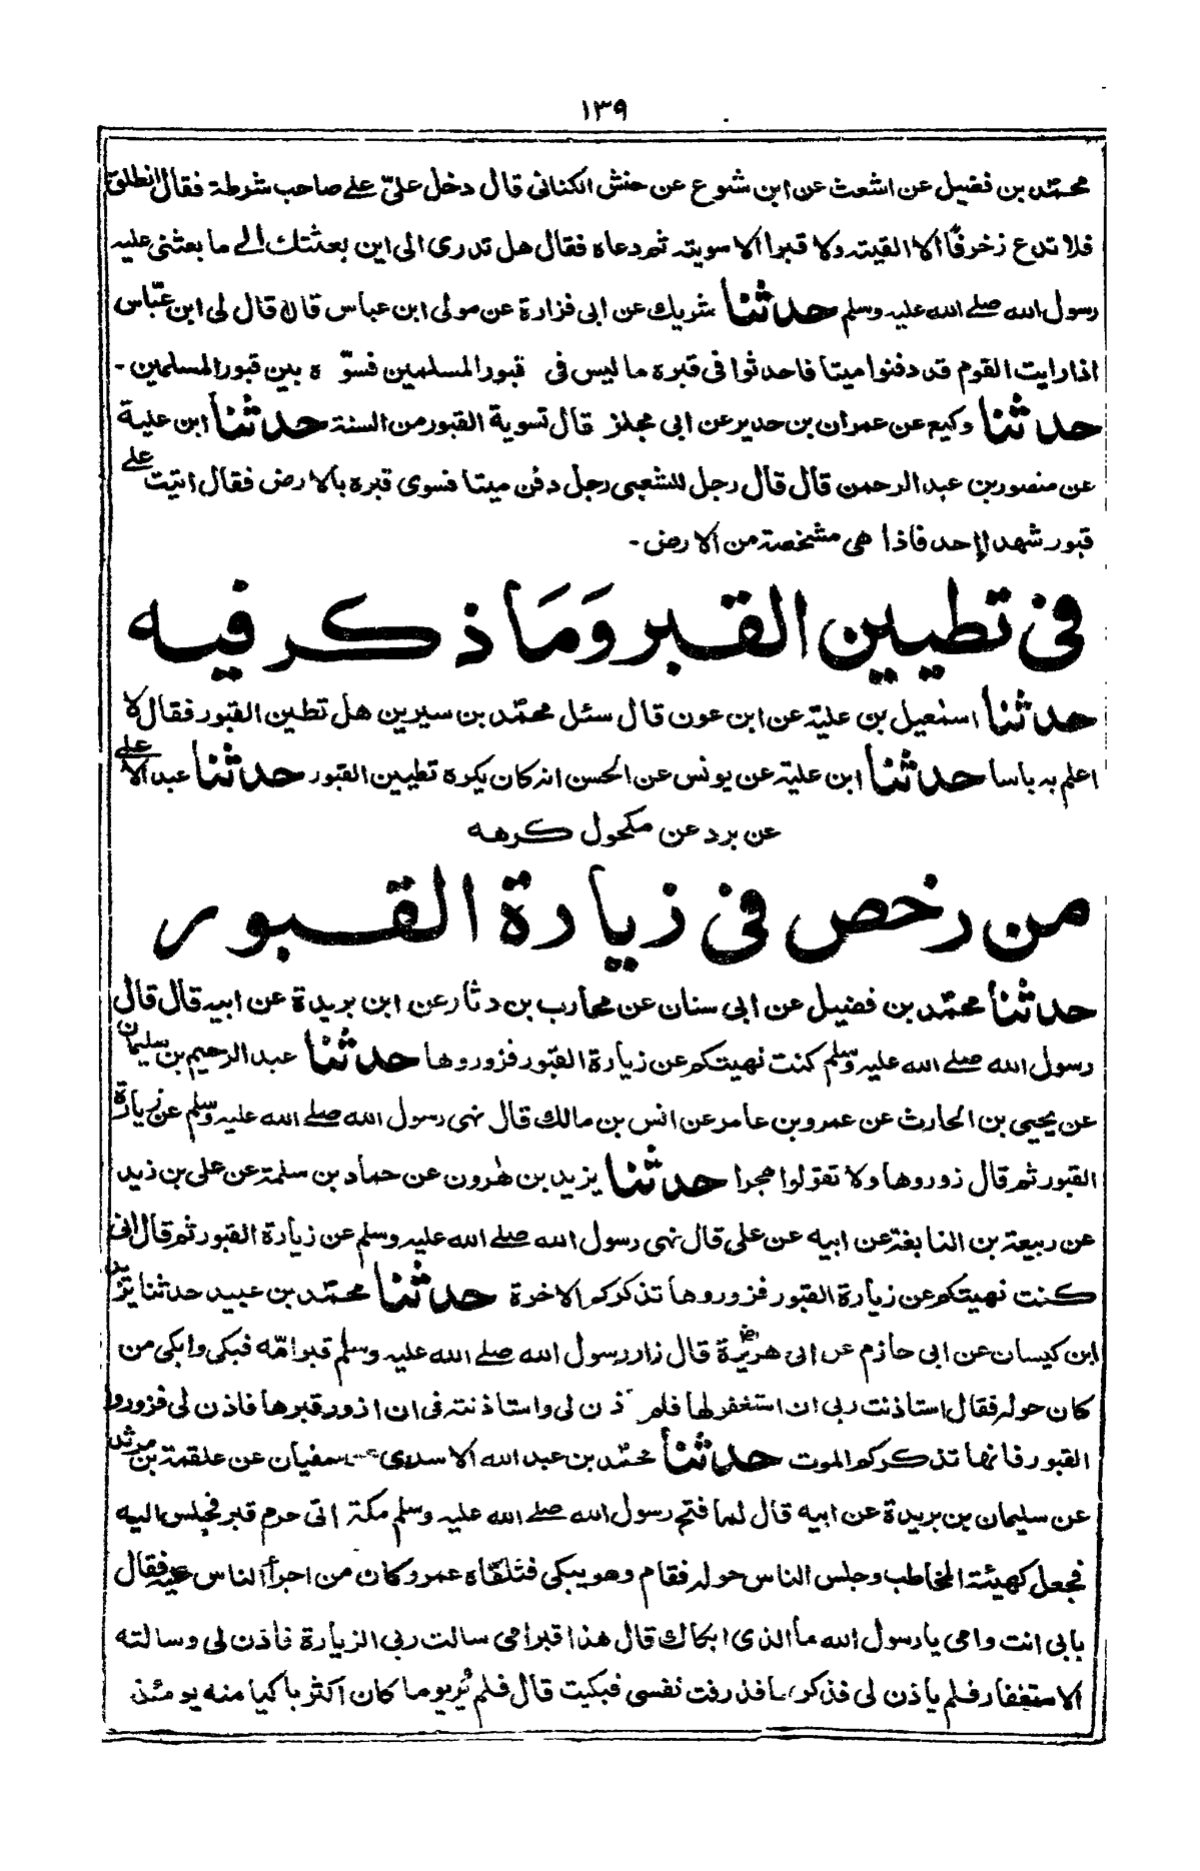 ١٣٩
محمد بن فضيل عن اشعث عن ابن شوع عن حنش الكنانى قال دخل علىّ على صاحب شرطة فقال انطلق
فلا تدع زخرفًا الا القيته ولا قبرا الا سويته ثم دعاه فقال هل تدرى الى اين بعثتك الى ما بعثنى عليه
رسول الله صلى الله عليه وسلم حدثنا شريك عن ابى فزارة عن مولى ابن عباس قال قال لى ابن عبّاس
اذا رايت القوم قد دفنوا ميتا فاحدثوا فى قبره ما ليس فى قبور المسلمين فسوّه بين قبور المسلمين -
حدثنا وكيع عن عمران بن حدير عن ابى مجلز قال تسوية القبور من السنة حدثنا ابن علية
عن منصور بن عبد الرحمن قال قال رجل للشعبى رجل دفن ميتا فسوى قبره بالارض فقال اتيت على
قبور شهدا احد فاذا هى مشخصة من الارض -
فى تطيين القبر وَمَا ذكر فيه
حدثنا اسمعيل بن علية عن ابن عون قال سئل محمّد بن سيرين هل تطين القبور فقال لا
اعلم به باسا حدثنا ابن علية عن يونس عن الحسن انه كان يكره تطيين القبور حدثنا عبد الاعلى
عن برد عن مكحول كرهه
من رخص فى زيارة القبور
حدثنا محمّد بن فضيل عن ابى سنان عن محارب بن دثار عن ابن بريدة عن ابيه قال قال
رسول الله صلى الله عليه وسلم كنت نهيتكم عن زيارة القبور فزوروها حدثنا عبد الرحيم بن سليمان
عن يحيى بن الحارث عن عمرو بن عامر عن انس بن مالك قال نهى رسول الله صلى الله عليه وسلم عن زيارة
القبور ثم قال زوروها ولا تقولوا هجرا حدثنا يزيد بن هٰرون عن حماد بن سلمة عن على بن زيد
عن ربيعة بن النابغة عن ابيه عن على قال نهى رسول الله صلى الله عليه وسلم عن زيارة القبور ثم قال انى
كنت نهيتكم عن زيارة القبور فزوروها تذكركم الاخرة حدثنا محمّد بن عبيد حدثنا يزيد
ابن كيسان عن ابى حازم عن ابى هريرة قال زار رسول الله صلى الله عليه وسلم قبر امّه فبكى وابكى من
كان حوله فقال استاذنت ربى ان استغفر لها فلم ذن لى واستاذنته فى ان ازور قبرها فاذن لى فزوروا
القبور فانها تذكركم الموت حدثنا محمّد بن عبد الله الاسدى عن سفيان عن علقمة بن مرثد
عن سليمان بن بريدة عن ابيه قال لما فتح رسول الله صلى الله عليه وسلم مكة اتى حرم قبر فجلس اليه
فجعل كهيئة المخاطب وجلس الناس حوله فقام وهو يبكى فتلقاه عمر وكان من اجرأ الناس عليه فقال
بابى انت وامى يا رسول الله ما الذى ابكاك قال هذا قبر امى سالت ربى الزيارة فاذن لى وسالته
الاستغفار فلم ياذن لى فذكرتها فذرفت نفسى فبكيت قال فلم يُر يوما كان اكثر باكيا منه يومئذ